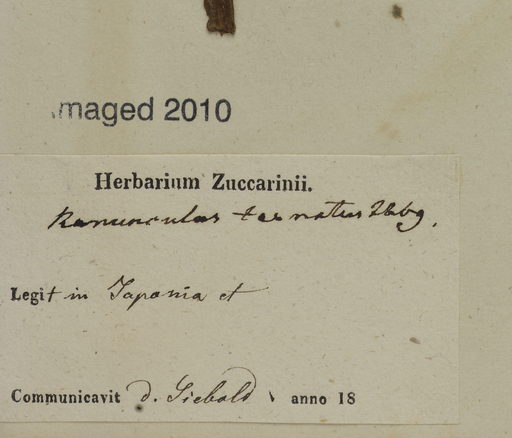 imaged 2010
Herbarium Zuccarinii.
Ranunculus ternatus Thbg.
Legit in Japonia et
Communicavit d. Siebold anno 18